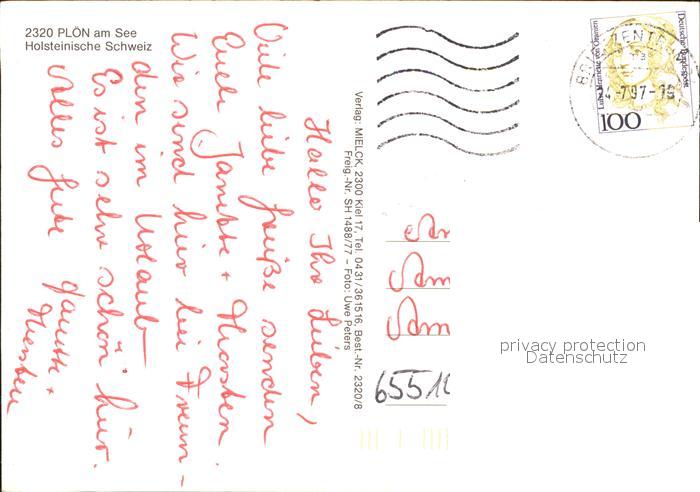 2320 PLÖN am See
Holsteinische Schweiz
Hallo Ihr Lieben,
Viele liebe Grüße senden
Euch Janette + Thorsten.
Wir sind hier bei Freun-
den im Urlaub.
Es ist sehr schön hier.
Alles Gute Janette +
Thorsten
Verlag: MIELCK, 2300 Kiel 17, Tel. 0431/361516, Best.-Nr. 2320/8
Freig.-Nr. SH 1488/77 – Foto: Uwe Peters
Deutsche Bundespost
Luise Henriette von Oranien
100
BRIEFZENTRUM
4.-7.97-19
An
Fam
Fam
privacy protection
Datenschutz